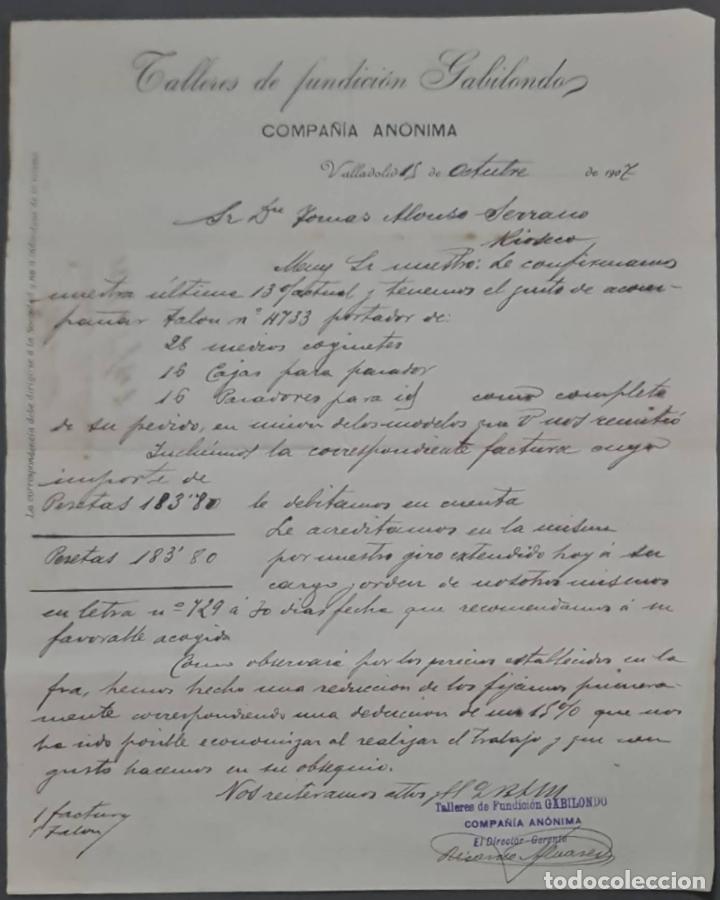 Talleres de fundición Gabilondo
COMPAÑÍA ANÓNIMA
Valladolid 15 de Octubre de 1907
Sr Dn Tomas Alonso Serrano
Rioseco
Muy Sr nuestro: Le confirmamos
nuestra última 13 actual y tenemos el gusto de acom-
pañar talon nº 4733 portador de:
28 medios coginetes
16 Cajas para parador
16 Paradores para id como completo
de su pedido, en union de los modelos que V nos remitió
Incluimos la correspondiente factura cuyo
importe de
Pesetas 183"80 le debitamos en cuenta
Le acreditamos en la misma
Pesetas 183'80 por nuestro giro extendido hoy á su
cargo y orden de nosotros mismos
en letra nº 729 á 30 dias fecha que recomendamos á su
favorable acogida
Como observará por los precios establecidos en la
fra, hemos hecho una reduccion de los fijamos primera-
mente correspondiendo una deduccion de un 15% que nos
ha sido posible economizar al realizar el trabajo y que con
gusto hacemos en su obsequio.
Nos reiteramos attos
Talleres de Fundición GABILONDO
COMPAÑÍA ANÓNIMA
El Director-Gerente
Alvarez
1 factura
1 talon
La correspondencia debe dirigirse á la Sociedad y no á individuos de la misma
todocoleccion.net